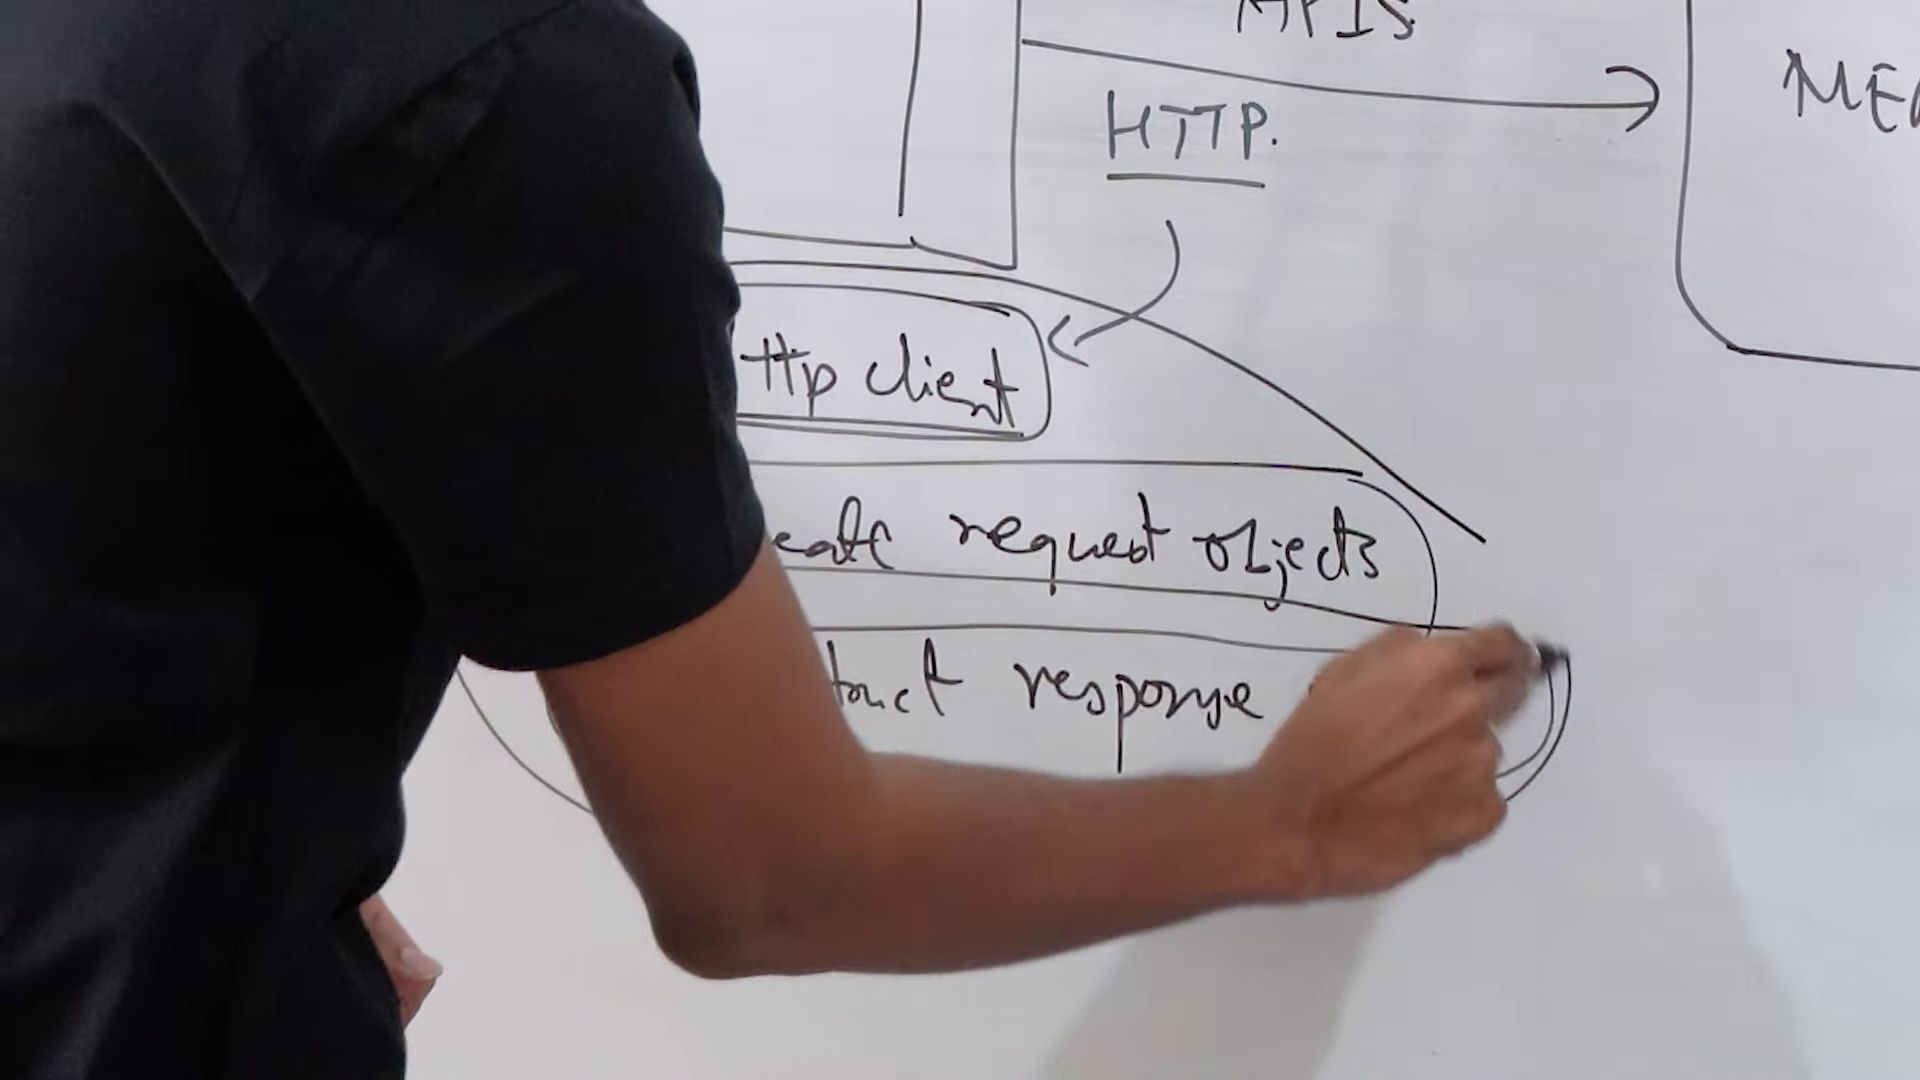 APIS
HTTP.
MEA
Http client
eate request objects
truct response